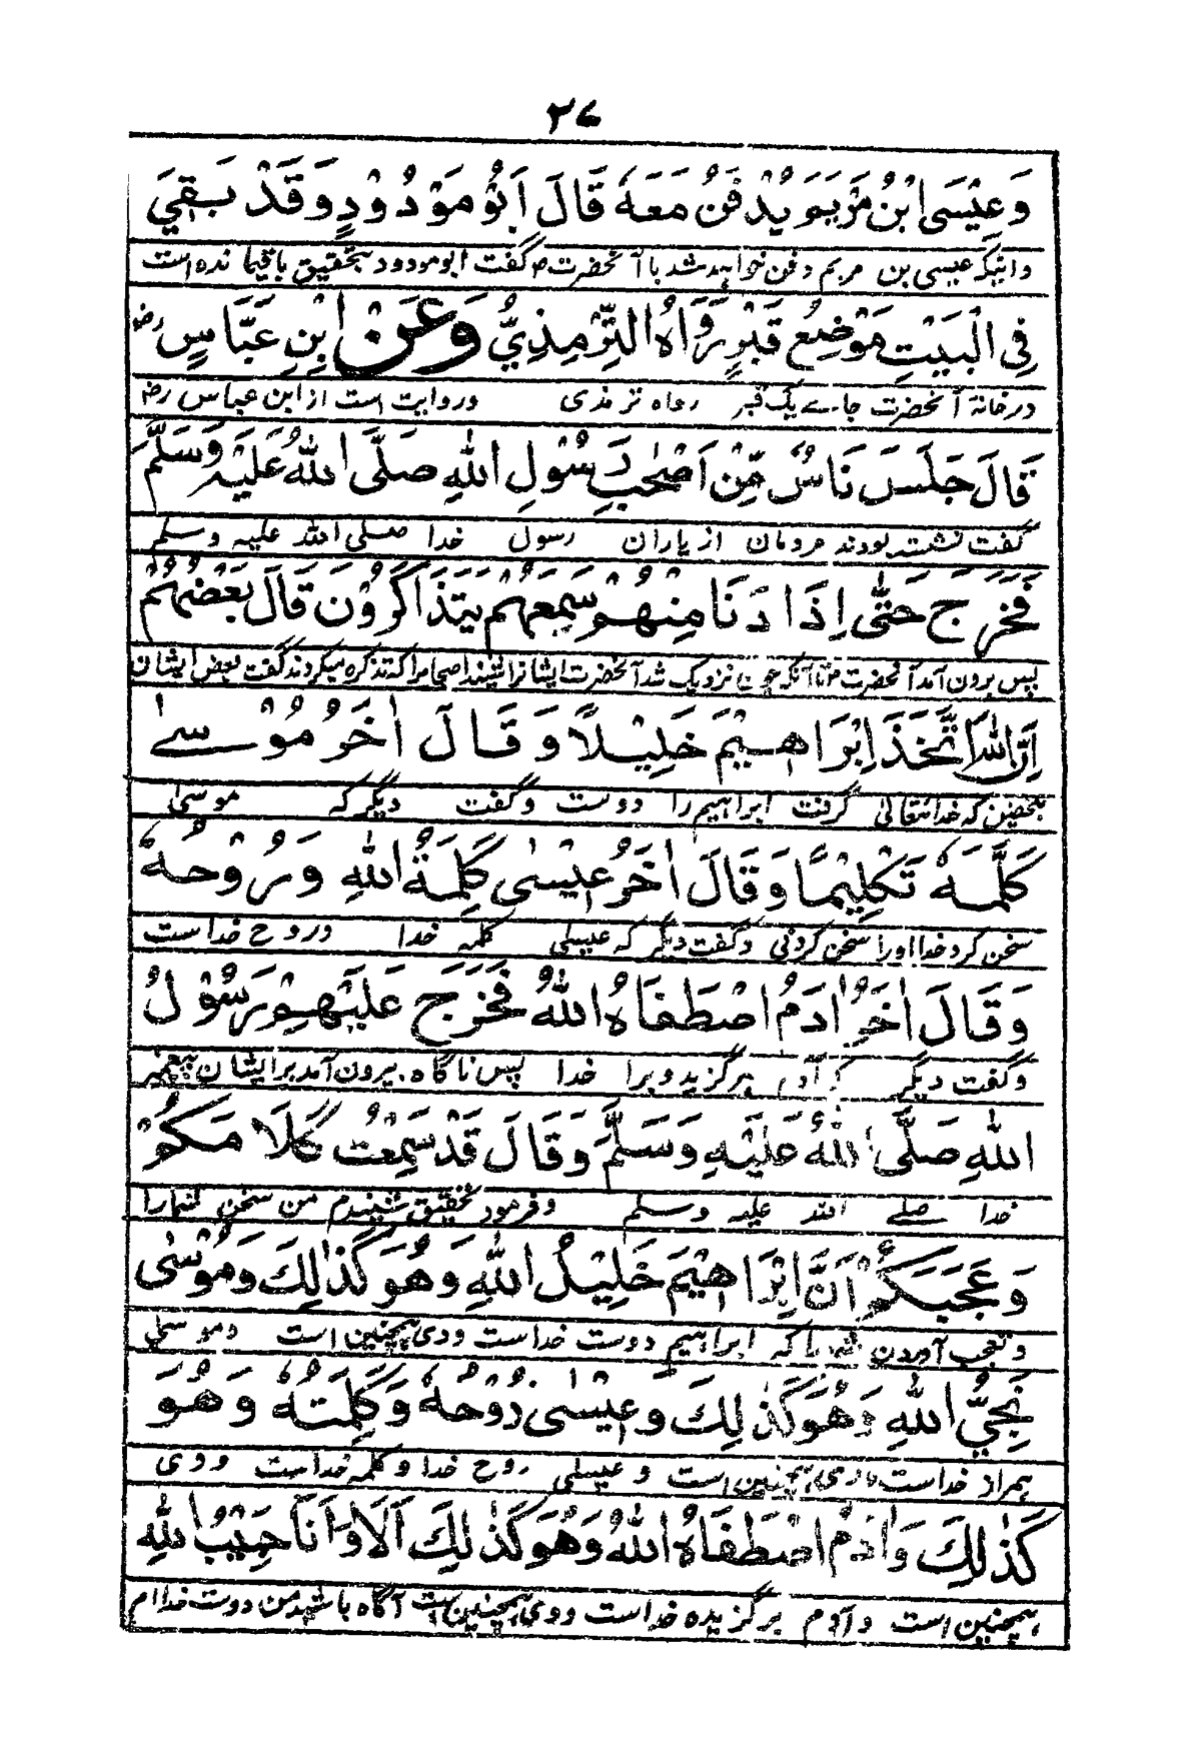 ۲۷
وَعِيْسَى ابْنُ مَرْيَمَ يُدْفَنُ مَعَهٗ قَالَ اَبُوْ مَوْدُوْدٍ وَقَدْ بَقِيَ
واینکه عیسی بن مریم دفن خواهد شد با آنحضرت ص گفت ابو مودود بتحقیق باقیمانده است
فِي الْبَيْتِ مَوْضِعُ قَبْرٍ رَوَاهُ التِّرْمِذِيُّ وَعَنْ ابْنِ عَبَّاسٍ رض
در خانهٔ آنحضرت جاے یک قبر رواه ترمذی وروایت است از ابن عباس رض
قَالَ جَلَسَ نَاسٌ مِّنْ اَصْحٰبِ رَسُوْلِ اللهِ صَلَّى اللهُ عَلَيْهِ وَسَلَّمَ
گفت نشسته بودند مردمان از یاران رسول خدا صلی الله علیه وسلم
فَخَرَجَ حَتّٰى اِذَا دَنَا مِنْهُمْ سَمِعَهُمْ يَتَذَاكَرُوْنَ قَالَ بَعْضُهُمْ
پس برون آمد آنحضرت تا آنکه چون نزدیک شد آنحضرت ایشانرا شنید اصحاب را که تذکره میکردند گفت بعض ایشان
اِنَّ اللهَ اتَّخَذَ اِبْرَاهِيْمَ خَلِيْلًا وَقَالَ اٰخَرُ مُوْسٰے
بتحقیق که خدا تعالی گرفت ابراهیم را دوست وگفت دیگر که موسیٰ
كَلَّمَهٗ تَكْلِيْمًا وَقَالَ اٰخَرُ عِيْسٰى كَلِمَةُ اللهِ وَرُوْحُهٗ
سخن کرد خدا اورا سخن کردنی وگفت دیگر که عیسیٰ کلمه خدا وروح خدا ست
وَقَالَ اٰخَرُ اٰدَمُ اصْطَفَاهُ اللهُ فَخَرَجَ عَلَيْهِمْ رَسُوْلُ
وگفت دیگر که آدم برگزید ویرا خدا پس ناگاه بیرون آمد بر ایشان پیغمبر
اللهِ صَلَّى اللهُ عَلَيْهِ وَسَلَّمَ وَقَالَ قَدْ سَمِعْتُ كَلَامَكُمْ
خدا صلے الله علیه وسلم وفرمود بتحقیق شنیدم من سخن شمارا
وَعَجَبَكُمْ اَنَّ اِبْرَاهِيْمَ خَلِيْلُ اللهِ وَهُوَ كَذٰلِكَ وَمُوْسٰى
وتعجب آمدن شما با که ابراهیم دوست خداست ووی همچنین است وموسیٰ
نَجِيُّ اللهِ وَهُوَ كَذٰلِكَ وَعِيْسٰى رُوْحُهٗ وَكَلِمَتُهٗ وَهُوَ
همراز خداست ووی همچنین است وعیسیٰ روح خدا وکلمه خداست ووی
كَذٰلِكَ وَاٰدَمُ اصْطَفَاهُ اللهُ وَهُوَ كَذٰلِكَ اَلَا وَاَنَا حَبِيْبُ اللهِ
همچنین است وآدم برگزیده خداست ووی همچنین است آگاه باشید من دوست خداام